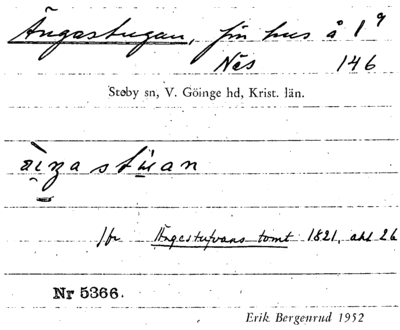 Ängastugan, fin hus å 1⁹
Näs 146
Stoby sn, V. Göinge hd, Krist. län.
Ängestufvans tomt 1821, akt 26
Nr 5366.
Erik Bergenrud 1952